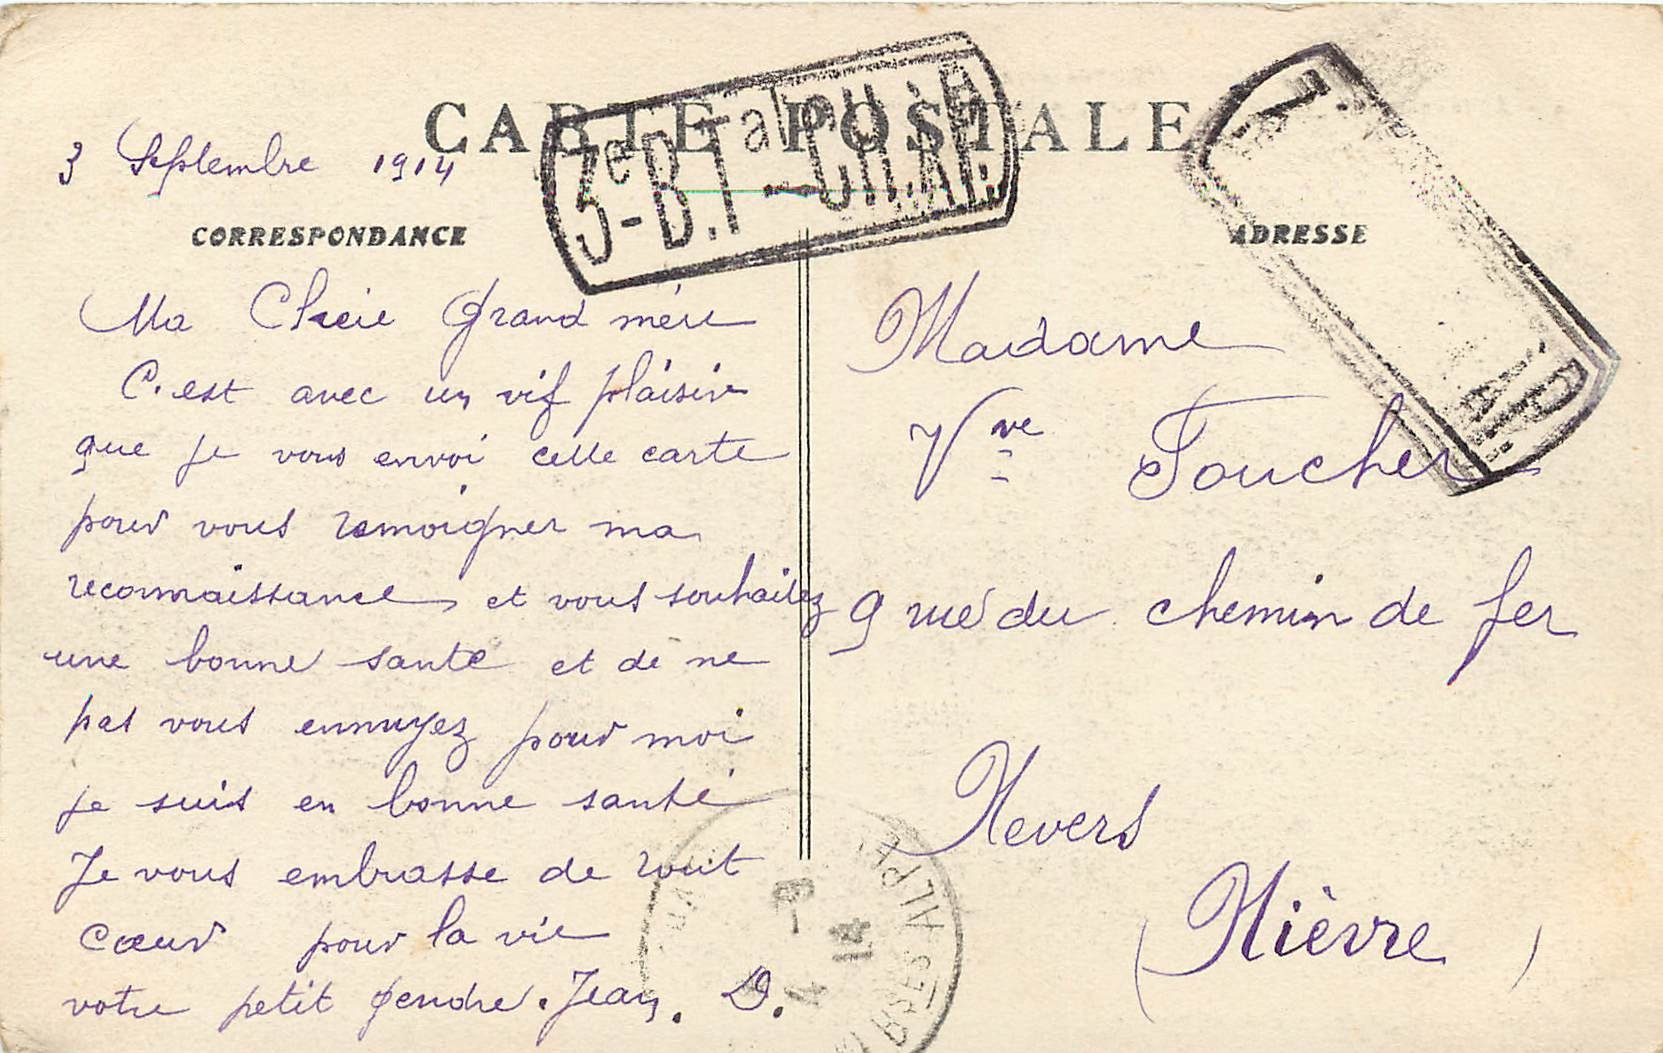 CARTE POSTALE
3 Septembre 1914
3e B.Tal CH. AP.
CORRESPONDANCE
Ma Cheie Grand mère
C'est avec un vif plaisir
que je vous envoi cette carte
pour vous temoigner ma
reconnaissance, et vous souhaitez
une bonne santé et de ne
pas vous ennuyez pour moi
je suis en bonne santé
Je vous embrasse de tout
cœur pour la vie
votre petit gendre. Jean. D.
ADRESSE
Madame
Vve Foucher
9 rue du chemin de fer
Nevers
(Nièvre)
AP.
4 -9
14
SES ALPES